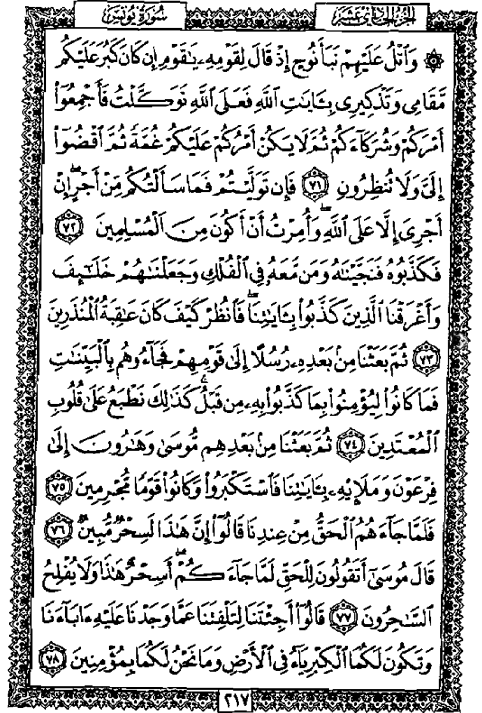 الجزء الحادي عشر
سورة يونس
۞ وَٱتْلُ عَلَيْهِمْ نَبَأَ نُوحٍ إِذْ قَالَ لِقَوْمِهِۦ يَٰقَوْمِ إِن كَانَ كَبُرَ عَلَيْكُم
مَّقَامِى وَتَذْكِيرِى بِـَٔايَٰتِ ٱللَّهِ فَعَلَى ٱللَّهِ تَوَكَّلْتُ فَأَجْمِعُوٓا۟
أَمْرَكُمْ وَشُرَكَآءَكُمْ ثُمَّ لَا يَكُنْ أَمْرُكُمْ عَلَيْكُمْ غُمَّةً ثُمَّ ٱقْضُوٓا۟
إِلَىَّ وَلَا تُنظِرُونِ ٧١ فَإِن تَوَلَّيْتُمْ فَمَا سَأَلْتُكُم مِّنْ أَجْرٍ ۖ إِنْ
أَجْرِىَ إِلَّا عَلَى ٱللَّهِ ۖ وَأُمِرْتُ أَنْ أَكُونَ مِنَ ٱلْمُسْلِمِينَ ٧٢
فَكَذَّبُوهُ فَنَجَّيْنَٰهُ وَمَن مَّعَهُۥ فِى ٱلْفُلْكِ وَجَعَلْنَٰهُمْ خَلَٰٓئِفَ
وَأَغْرَقْنَا ٱلَّذِينَ كَذَّبُوا۟ بِـَٔايَٰتِنَا ۖ فَٱنظُرْ كَيْفَ كَانَ عَٰقِبَةُ ٱلْمُنذَرِينَ
٧٣ ثُمَّ بَعَثْنَا مِنۢ بَعْدِهِۦ رُسُلًا إِلَىٰ قَوْمِهِمْ فَجَآءُوهُم بِٱلْبَيِّنَٰتِ
فَمَا كَانُوا۟ لِيُؤْمِنُوا۟ بِمَا كَذَّبُوا۟ بِهِۦ مِن قَبْلُ ۚ كَذَٰلِكَ نَطْبَعُ عَلَىٰ قُلُوبِ
ٱلْمُعْتَدِينَ ٧٤ ثُمَّ بَعَثْنَا مِنۢ بَعْدِهِم مُّوسَىٰ وَهَٰرُونَ إِلَىٰ
فِرْعَوْنَ وَمَلَإِي۟هِۦ بِـَٔايَٰتِنَا فَٱسْتَكْبَرُوا۟ وَكَانُوا۟ قَوْمًا مُّجْرِمِينَ ٧٥
فَلَمَّا جَآءَهُمُ ٱلْحَقُّ مِنْ عِندِنَا قَالُوٓا۟ إِنَّ هَٰذَا لَسِحْرٌ مُّبِينٌ ٧٦
قَالَ مُوسَىٰٓ أَتَقُولُونَ لِلْحَقِّ لَمَّا جَآءَكُمْ ۖ أَسِحْرٌ هَٰذَا وَلَا يُفْلِحُ
ٱلسَّٰحِرُونَ ٧٧ قَالُوٓا۟ أَجِئْتَنَا لِتَلْفِتَنَا عَمَّا وَجَدْنَا عَلَيْهِ ءَابَآءَنَا
وَتَكُونَ لَكُمَا ٱلْكِبْرِيَآءُ فِى ٱلْأَرْضِ وَمَا نَحْنُ لَكُمَا بِمُؤْمِنِينَ ٧٨
٢١٧